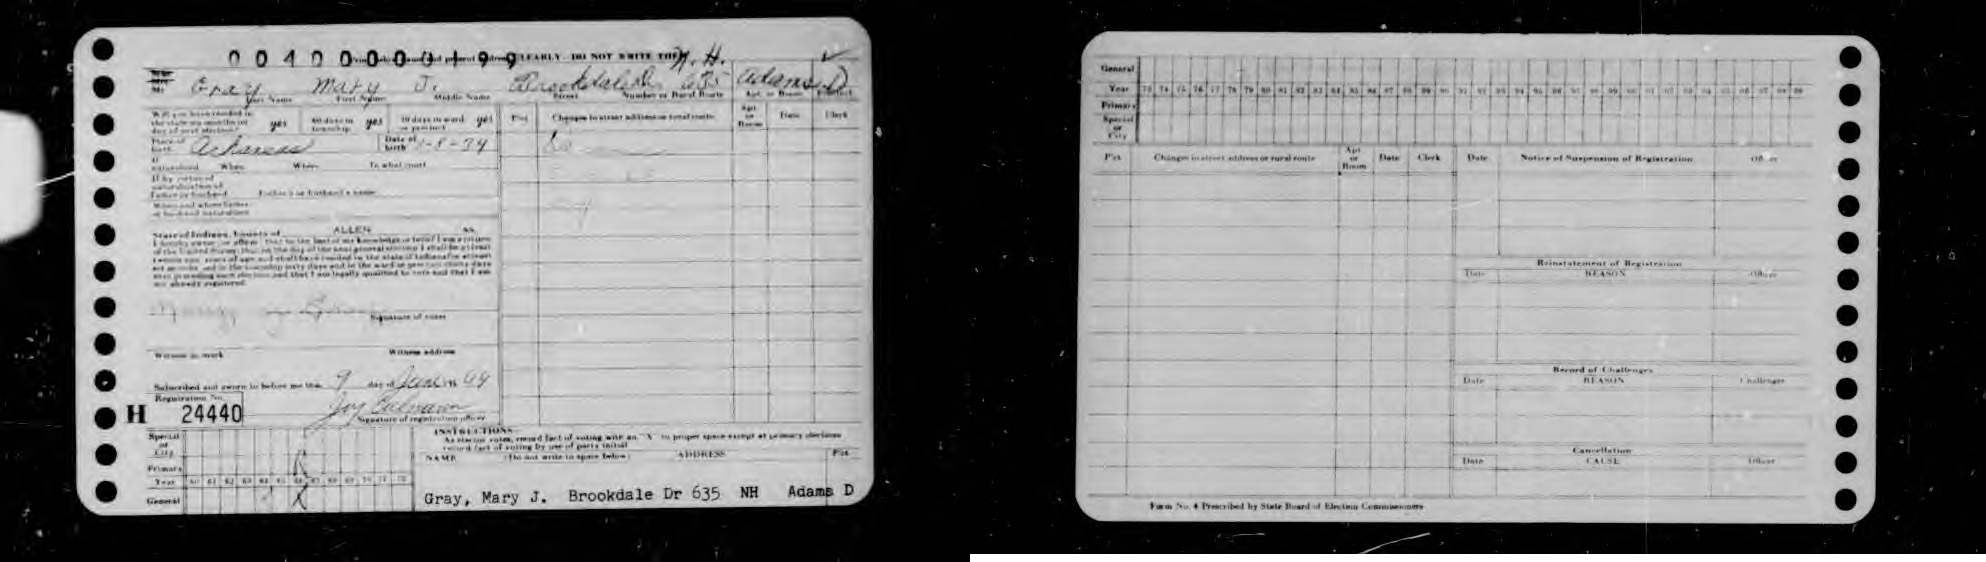 0040000199 CLEARLY - DO NOT WRITE N.H.
Gray Mary J. Brookdale Dr 635 Adams D
Last Name First Name Middle Name Street Number or Rural Route Apt. or Room Precinct
Will you have resided in the state six months on day of next election? yes 60 days in township yes 30 days in ward or precinct yes
Pct Changes in street address or rural route Apt or Room Date Clerk
Place of birth Arkansas Date of birth -8-34
If naturalized When Where In what court
If by virtue of naturalization of Father or husband Father's or husband's name
When and where father or husband naturalized
State of Indiana, County of ALLEN ss.
I hereby swear, or affirm, that to the best of my knowledge or belief I am a citizen
of the United States; that on the day of the next general election I shall be at least
twenty-one years of age and shall have resided in the state of Indiana for at least
six months, and in the township sixty days and in the ward or precinct thirty days
next preceding such election and that I am legally qualified to vote and that I am
not already registered.
Mary J. Gray
Signature of voter
Witness to mark Witness address
Subscribed and sworn to before me this 9 day of 19 64
Registration No.
H 24440
Signature of registration officer
INSTRUCTIONS
As elector votes, record fact of voting with an "X" in proper space except at primary elections
record fact of voting by use of party initial
NAME (Do not write in space below) ADDRESS Pct.
Special or City
Primary
Year 60 61 62 63 64 65 66 67 68 69 70 71 72
General X
Gray, Mary J. Brookdale Dr 635 NH Adams D
General
Year 73 74 75 76 77 78 79 80 81 82 83 84 85 86 87 88 89 90
Primary
Special or City
Pct Changes in street address or rural route Apt or Room Date Clerk
Date Notice of Suspension of Registration Officer
Reinstatement of Registration
Date REASON Officer
Record of Challenges
Date REASON Challenger
Cancellation
Date CAUSE Officer
Form No. 4 Prescribed by State Board of Election Commissioners